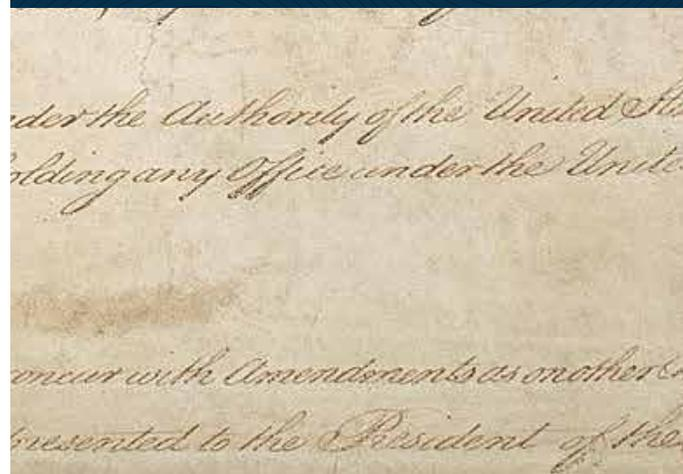 nder the Authority of the United Sta
olding any Office under the Unite
oncur with Amendments as on other
resented to the President of the